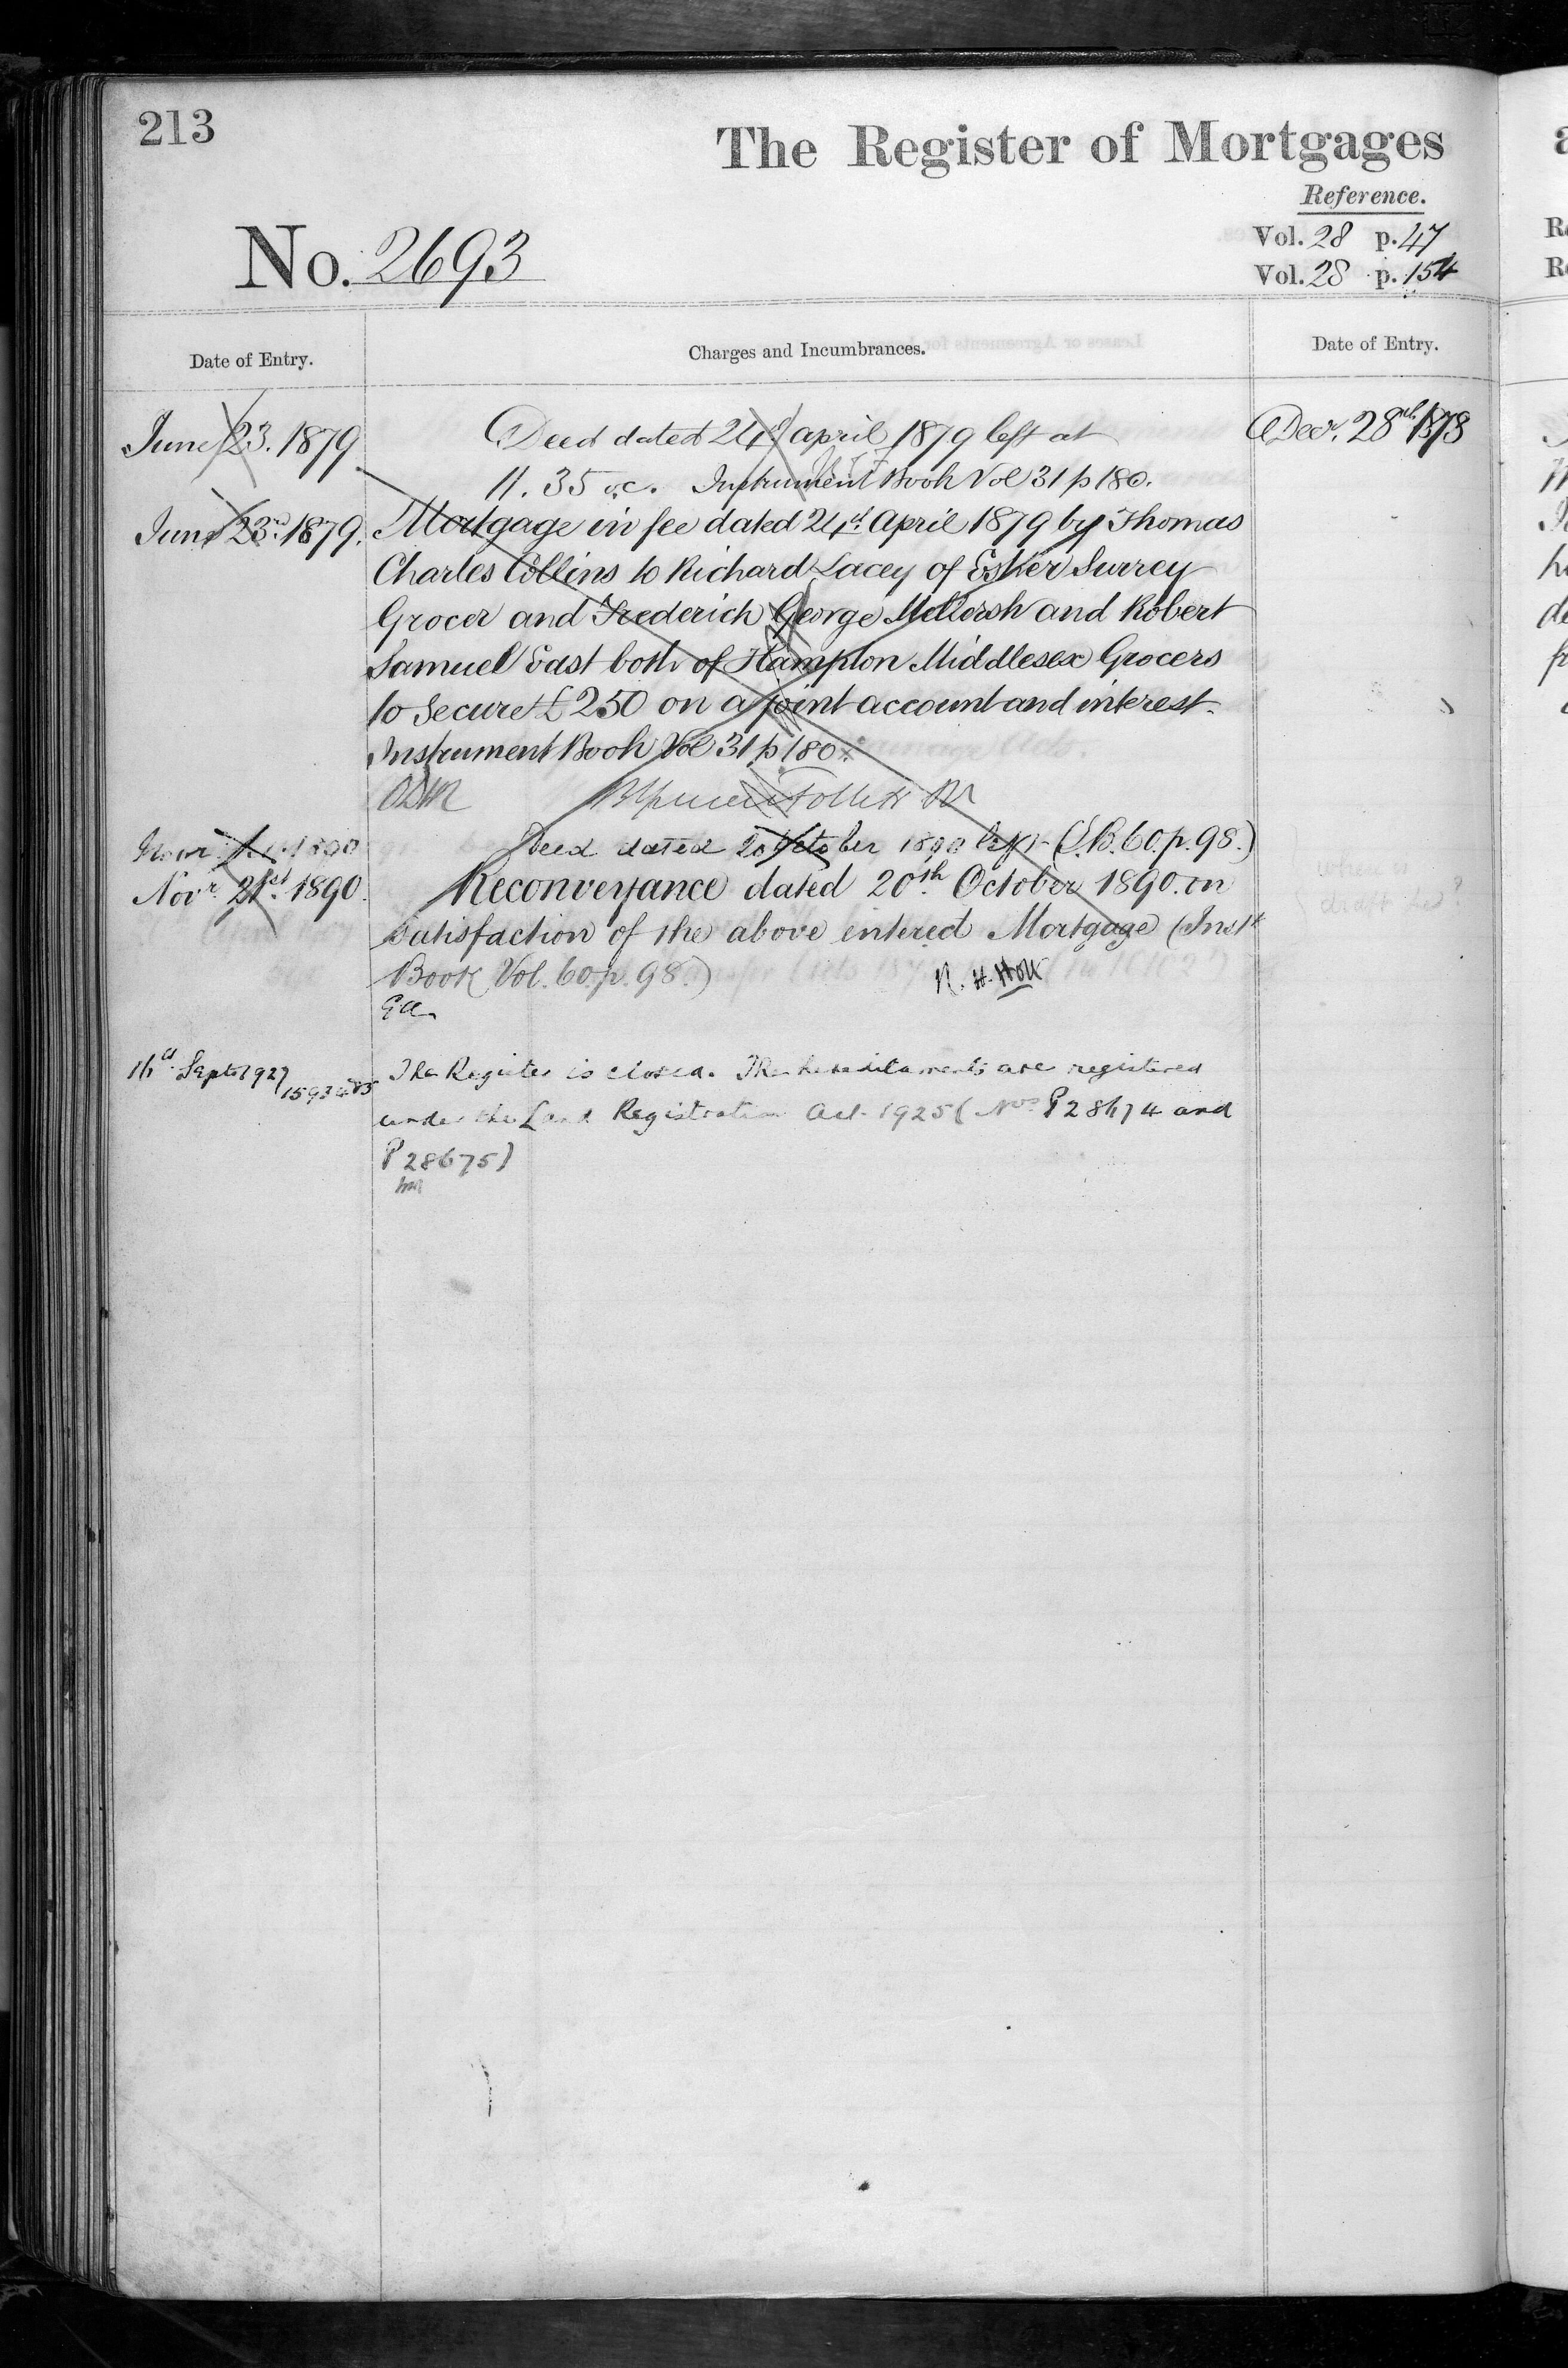 213
The Register of Mortgages
Reference.
No. 2693
Vol. 28 p. 47
Vol. 28 p. 154
Date of Entry.
Charges and Incumbrances.
Date of Entry.
June 23. 1879
Deed dated 21st April 1879 left at
Decr. 28th 1878
11. 35 o.c. Instrument Book Vol 31 p 180.
June 23rd 1879.
Mortgage in fee dated 21st April 1879 by Thomas
Charles Collins to Richard Lacey of Esher Surrey
Grocer and Frederich George Mellersh and Robert
Samuel East both of Hampton Middlesex Grocers
to secure £250 on a joint account and interest.
Instrument Book Vol 31 p 180.
Follett
Novr 1890
Deed dated 20 October 1890 left (I.B. 60. p. 98.)
Novr 21st 1890.
Reconveyance dated 20th October 1890. on
satisfaction of the above entered Mortgage (Inst
Book Vol. 60. p. 98.)
R. H. Holt
16th Sept 1927
The Register is closed. The hereditaments are registered
under the Land Registration Act 1925 (Nos P28674 and
P28675)